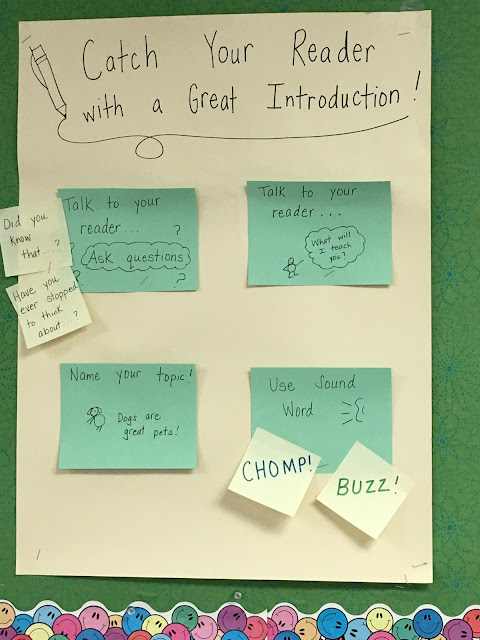 Catch Your Reader
with a Great Introduction!
Talk to your
reader...
?
Ask questions
?
?
Did you
know
that...?
Have you
ever stopped
to think
about...?
Talk to your
reader...
What will
I teach
you?
Name your topic!
Dogs are
great pets!
Use Sound
Word
CHOMP!
BUZZ!